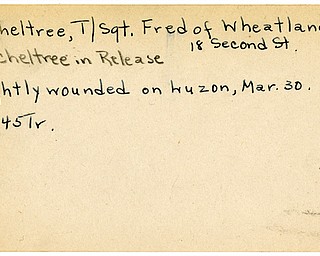 heltree, T/Sgt. Fred of Wheatland
18 Second St.
cheltree in Release
htly wounded on Luzon, Mar. 30.
45 Tr.